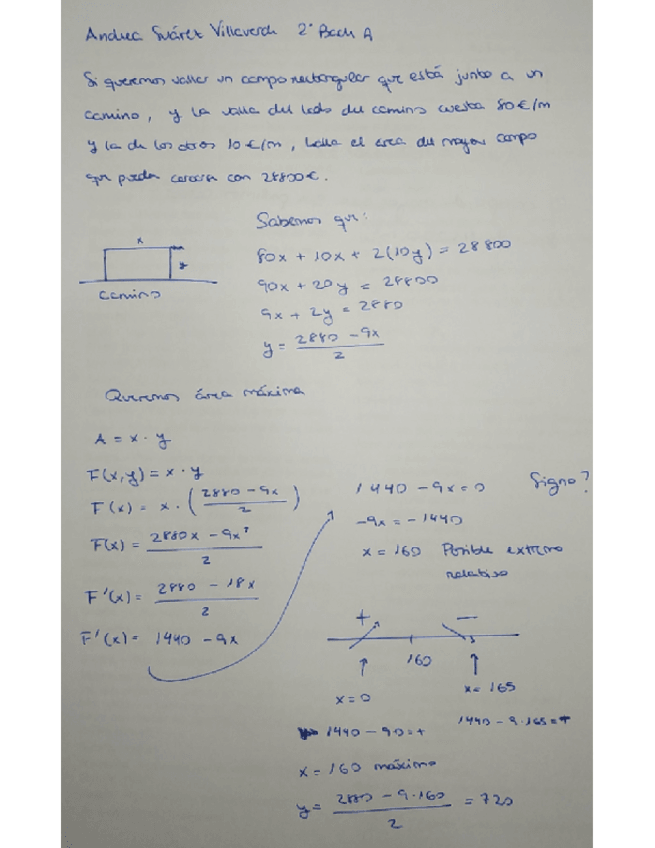 Andrea Suárez Villaverde 2º Bach A
Si queremos vallar un campo rectangular que está junto a un
camino, y la valla del lado del camino cuesta 80€/m
y la de los otros 10€/m, halla el área del mayor campo
que puede cercarse con 28800€.
Sabemos que:
80x + 10x + 2(10y) = 28800
90x + 20y = 28800
9x + 2y = 2880
y = (2880 - 9x)/2
x
y
camino
Queremos área máxima
A = x · y
F(x,y) = x · y
F(x) = x · ((2880 - 9x)/2)
F(x) = (2880x - 9x²)/2
F'(x) = (2880 - 18x)/2
F'(x) = 1440 - 9x
1440 - 9x = 0 Signo?
-9x = -1440
x = 160 Posible extremo
relativo
+ -
160
x = 0 x = 165
1440 - 90 = + 1440 - 9·165 = +
x = 160 máximo
y = (2880 - 9·160)/2 = 720